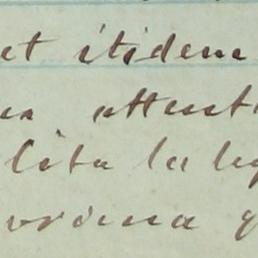 et itidem
attent
lita la leg
ordena q